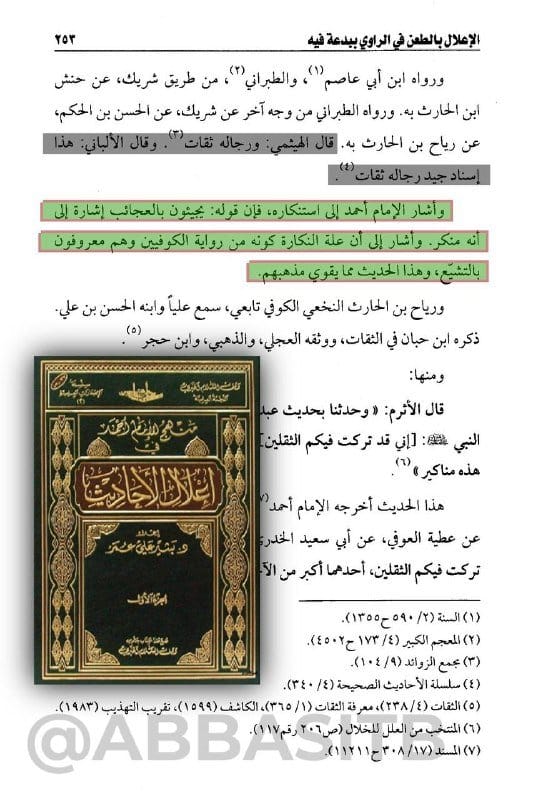 الإعلال بالطعن في الراوي ببدعة فيه
٢٥٣
ورواه ابن أبي عاصم(١)، والطبراني(٢)، من طريق شريك، عن حنش
ابن الحارث به. ورواه الطبراني من وجه آخر عن شريك، عن الحسن بن الحكم،
عن رياح بن الحارث به. قال الهيثمي: ورجاله ثقات(٣). وقال الألباني: هذا
إسناد جيد رجاله ثقات(٤).
وأشار الإمام أحمد إلى استنكاره، فإن قوله: يجيئون بالعجائب إشارة إلى
أنه منكر. وأشار إلى أن علة النكارة كونه من رواية الكوفيين وهم معروفون
بالتشيّع، وهذا الحديث مما يقوي مذهبهم.
ورياح بن الحارث النخعي الكوفي تابعي، سمع علياً وابنه الحسن بن علي.
ذكره ابن حبان في الثقات، ووثقه العجلي، والذهبي، وابن حجر(٥).
ومنها:
قال الأثرم: « وحدثنا بحديث عبد
النبي ﷺ: [إني قد تركت فيكم الثقلين]
هذه مناكير »(٦).
هذا الحديث أخرجه الإمام أحمد(٧)
عن عطية العوفي، عن أبي سعيد الخدري
تركت فيكم الثقلين، أحدهما أكبر من الآخ
منهج الإمام أحمد
في
إعلال الأحاديث
د. بشير علي عمر
الجزء الأول
(١) السنة (٢/ ٥٩٠ ح١٣٥٥).
(٢) المعجم الكبير (٤/ ١٧٣ ح٤٠٥٢).
(٣) مجمع الزوائد (٩/ ١٠٤).
(٤) سلسلة الأحاديث الصحيحة (٤/ ٣٤٠).
(٥) الثقات (٤/ ٢٣٨)، معرفة الثقات (١/ ٣٦٥)، الكاشف (١٥٩٩)، تقريب التهذيب (١٩٨٣).
(٦) المنتخب من العلل للخلال (ص٢٠٦ رقم١١٧).
(٧) المسند (١٧/ ٣٠٨ ح١١٢١١).
@ABBASITB